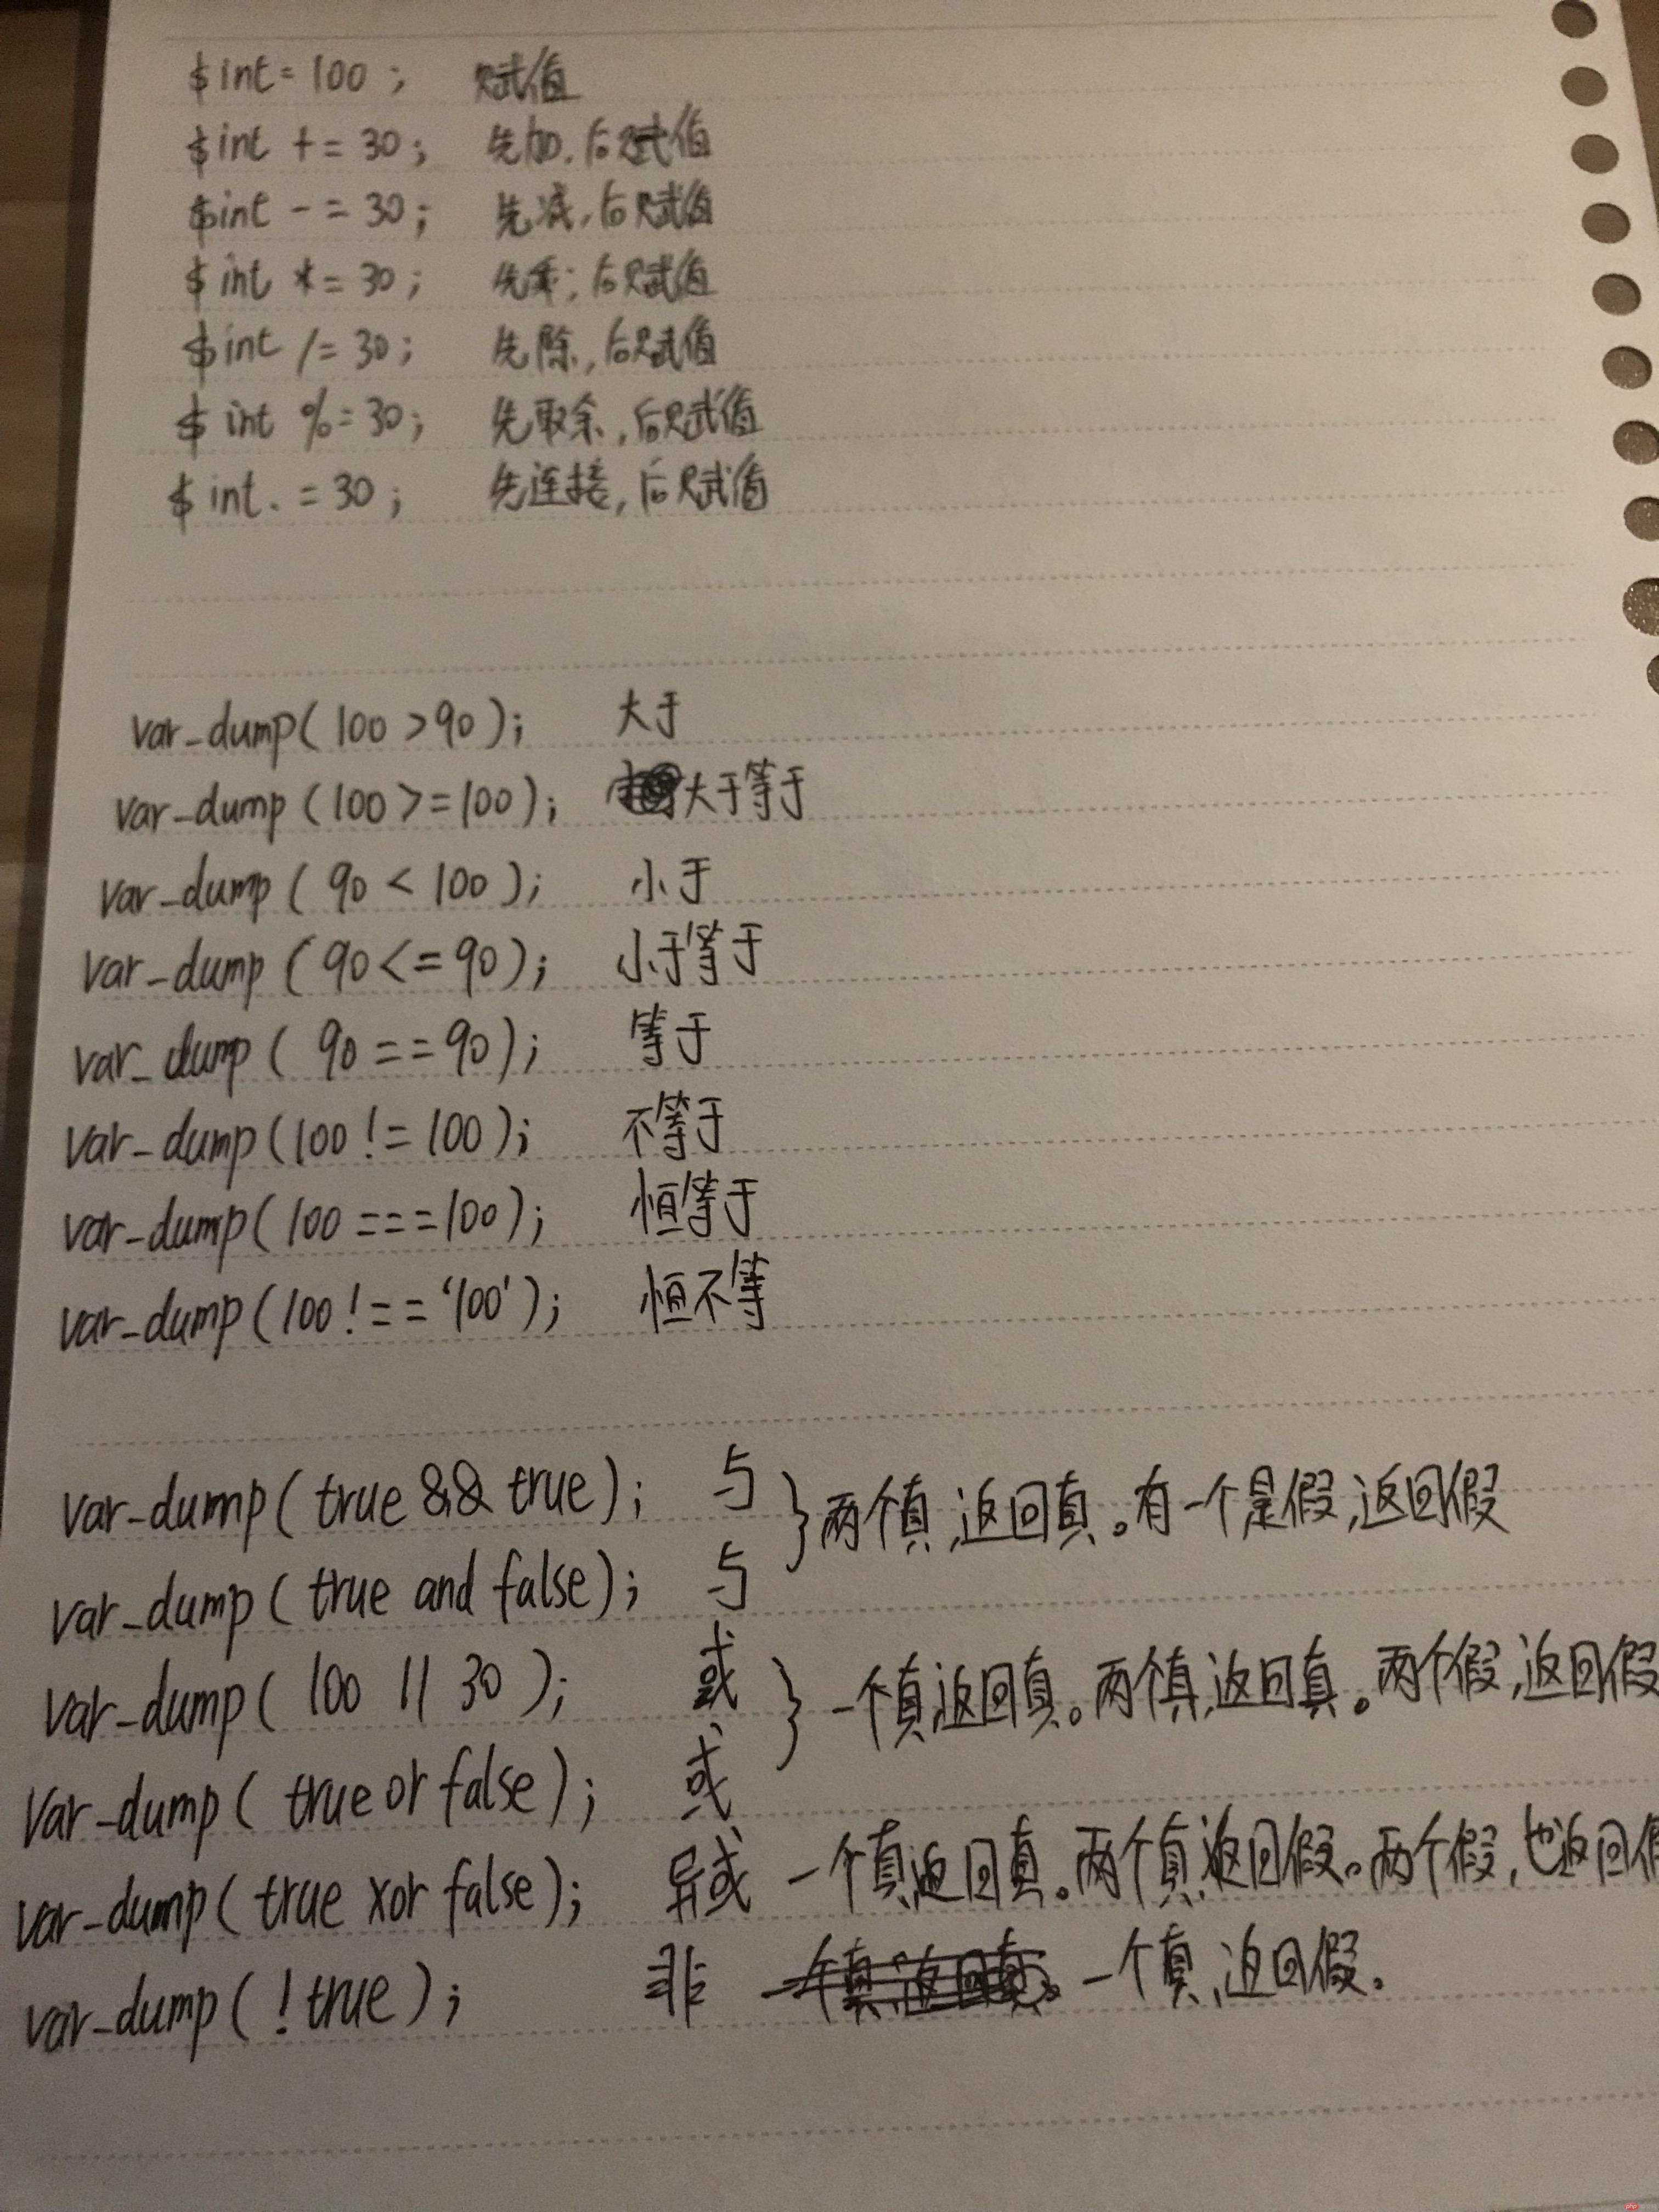 $int = 100 ; 赋值
$int += 30 ; 先加,后赋值
$int -= 30 ; 先减,后赋值
$int *= 30 ; 先乘,后赋值
$int /= 30 ; 先除,后赋值
$int %= 30 ; 先取余,后赋值
$int .= 30 ; 先连接,后赋值
var_dump( 100 > 90 ); 大于
var_dump (100 >= 100 ); 大于等于
var_dump ( 90 < 100 ); 小于
var_dump ( 90 <= 90 ); 小于等于
var_dump ( 90 == 90 ); 等于
var_dump (100 != 100 ); 不等于
var_dump( 100 === 100 ); 恒等于
var_dump (100 !== '100' ); 恒不等
var_dump( true && true ); 与 } 两个真,返回真。有一个是假,返回假
var_dump ( true and false ); 与
var_dump( 100 || 30 ); 或 } 一个真,返回真。两个真,返回真。两个假,返回假
Var_dump ( true or false ); 或
var_dump( true xor false ); 异或 一个真,返回真。两个真,返回假。两个假,也返回假
var_dump ( ! true ); 非 一个真,返回假。